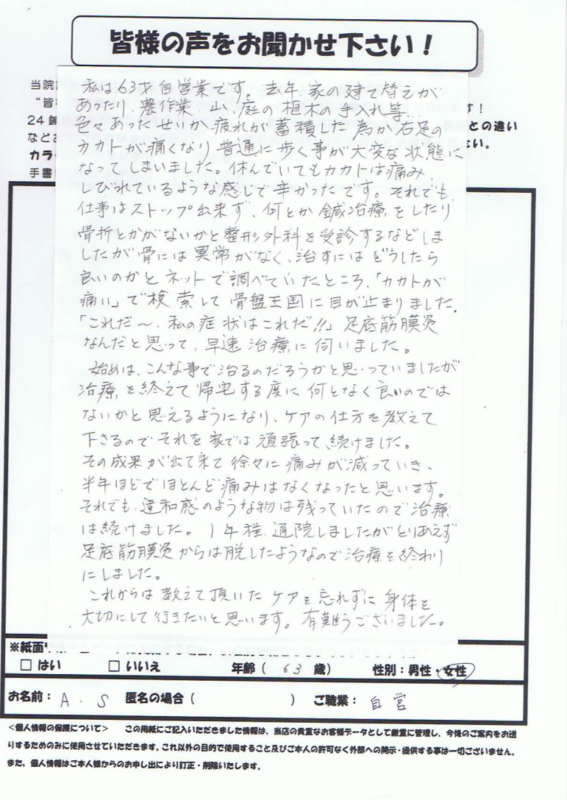 皆様の声をお聞かせ下さい！
当院
私は63才自営業です。去年家の建て替えが
あったり、農作業、山、庭の植木の手入れ等…
す！
24
色々あったせいか疲れが蓄積した為か右足の
との違い
などお
カカトが痛くなり普通に歩く事が大変な状態に
さい。
カラ
なってしまいました。休んでいてもカカトは痛み、
手書
しびれているような感じで辛かったです。それでも
仕事はストップ出来ず、何とか鍼治療をしたり
骨折とかがないかと整形外科を受診するなどしま
したが骨には異常がなく、治すにはどうしたら
良いのかとネットで調べていたところ、「カカトが
痛い」で検索して骨盤王国に目が止まりました。
「これだ～、私の症状はこれだ!!」足底筋膜炎
なんだと思って、早速治療に伺いました。
始めは、こんな事で治るのだろうかと思っていましたが
治療を終えて帰宅する度に何となく良いのでは
ないかと思えるようになり、ケアの仕方を教えて
下さるのでそれを家では頑張って続けました。
その成果が出て来て徐々に痛みが減っていき、
半年ほどでほとんど痛みはなくなったと思います。
それでも違和感のような物は残っていたので治療
は続けました。1年程通院しましたがとりあえず
足底筋膜炎からは脱したようなので治療を終わり
にしました。
これからは教えて頂いたケアを忘れずに身体を
大切にして行きたいと思います。有難うございました。
※紙面
□ はい □ いいえ 年齢（ 63 歳） 性別：男性・女性
お名前： A.S 匿名の場合（ ） ご職業： 自営
＜個人情報の保護について＞ この用紙にご記入いただきました情報は、当店の貴重なお客様データとして厳重に管理し、今後のご案内をお送
りするためのみに使用させていただきます。これ以外の目的で使用すること及びご本人の許可なく外部への開示・提供する事は一切ございません。
また、個人情報はご本人様からのお申し出により訂正・削除いたします。